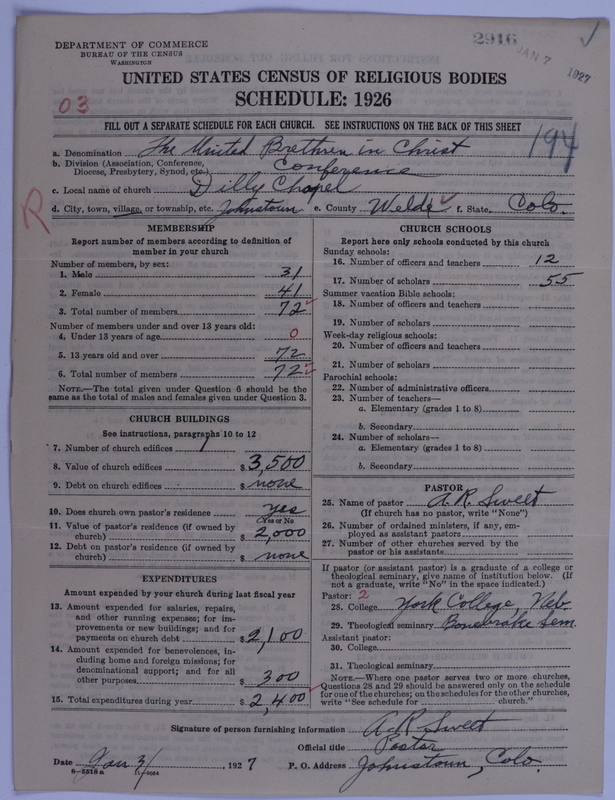 DEPARTMENT OF COMMERCE
BUREAU OF THE CENSUS
WASHINGTON
2916
JAN 7 1927
UNITED STATES CENSUS OF RELIGIOUS BODIES
SCHEDULE: 1926
03
FILL OUT A SEPARATE SCHEDULE FOR EACH CHURCH. SEE INSTRUCTIONS ON THE BACK OF THIS SHEET
194
a. Denomination The United Brethren in Christ
b. Division (Association, Conference, Diocese, Presbytery, Synod, etc.) Conference
c. Local name of church Dilly Chapel
R
d. City, town, village, or township, etc. Johnstown e. County Welde f. State Colo.
MEMBERSHIP
Report number of members according to definition of
member in your church
Number of members, by sex:
1. Male 31
2. Female 41
3. Total number of members 72
Number of members under and over 13 years old:
4. Under 13 years of age 0
5. 13 years old and over 72
6. Total number of members 72
NOTE.—The total given under Question 6 should be the
same as the total of males and females given under Question 3.
CHURCH BUILDINGS
See instructions, paragraphs 10 to 12
7. Number of church edifices 1
8. Value of church edifices $ 3,500
9. Debt on church edifices $ none
10. Does church own pastor's residence yes
(Yes or No)
11. Value of pastor's residence (if owned by
church) $ 2,000
12. Debt on pastor's residence (if owned by
church) $ none
EXPENDITURES
Amount expended by your church during last fiscal year
13. Amount expended for salaries, repairs,
and other running expenses; for im-
provements or new buildings; and for
payments on church debt $ 2,100
14. Amount expended for benevolences, in-
cluding home and foreign missions; for
denominational support; and for all
other purposes $ 300
15. Total expenditures during year $ 2,400
CHURCH SCHOOLS
Report here only schools conducted by this church
Sunday schools:
16. Number of officers and teachers 12
17. Number of scholars 55
Summer vacation Bible schools:
18. Number of officers and teachers
19. Number of scholars
Week-day religious schools:
20. Number of officers and teachers
21. Number of scholars
Parochial schools:
22. Number of administrative officers
23. Number of teachers—
a. Elementary (grades 1 to 8)
b. Secondary
24. Number of scholars—
a. Elementary (grades 1 to 8)
b. Secondary
PASTOR
25. Name of pastor A. R. Sweet
(If church has no pastor, write "None")
26. Number of ordained ministers, if any, em-
ployed as assistant pastors
27. Number of other churches served by the
pastor or his assistants
If pastor (or assistant pastor) is a graduate of a college or
theological seminary, give name of institution below. (If
not a graduate, write "No" in the space indicated.)
Pastor: 2
28. College York College, Neb.
29. Theological seminary Bonebrake Sem.
Assistant pastor:
30. College
31. Theological seminary
NOTE.—Where one pastor serves two or more churches,
Questions 28 and 29 should be answered only on the schedule
for one of the churches; on the schedules for the other churches,
write "See schedule for church."
Signature of person furnishing information A. R. Sweet
Official title Pastor
Date Jan 3/, 1927 P. O. Address Johnstown, Colo.
8-5518 a